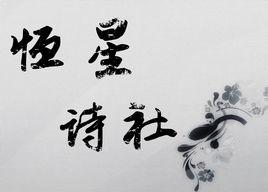 恒星
诗社